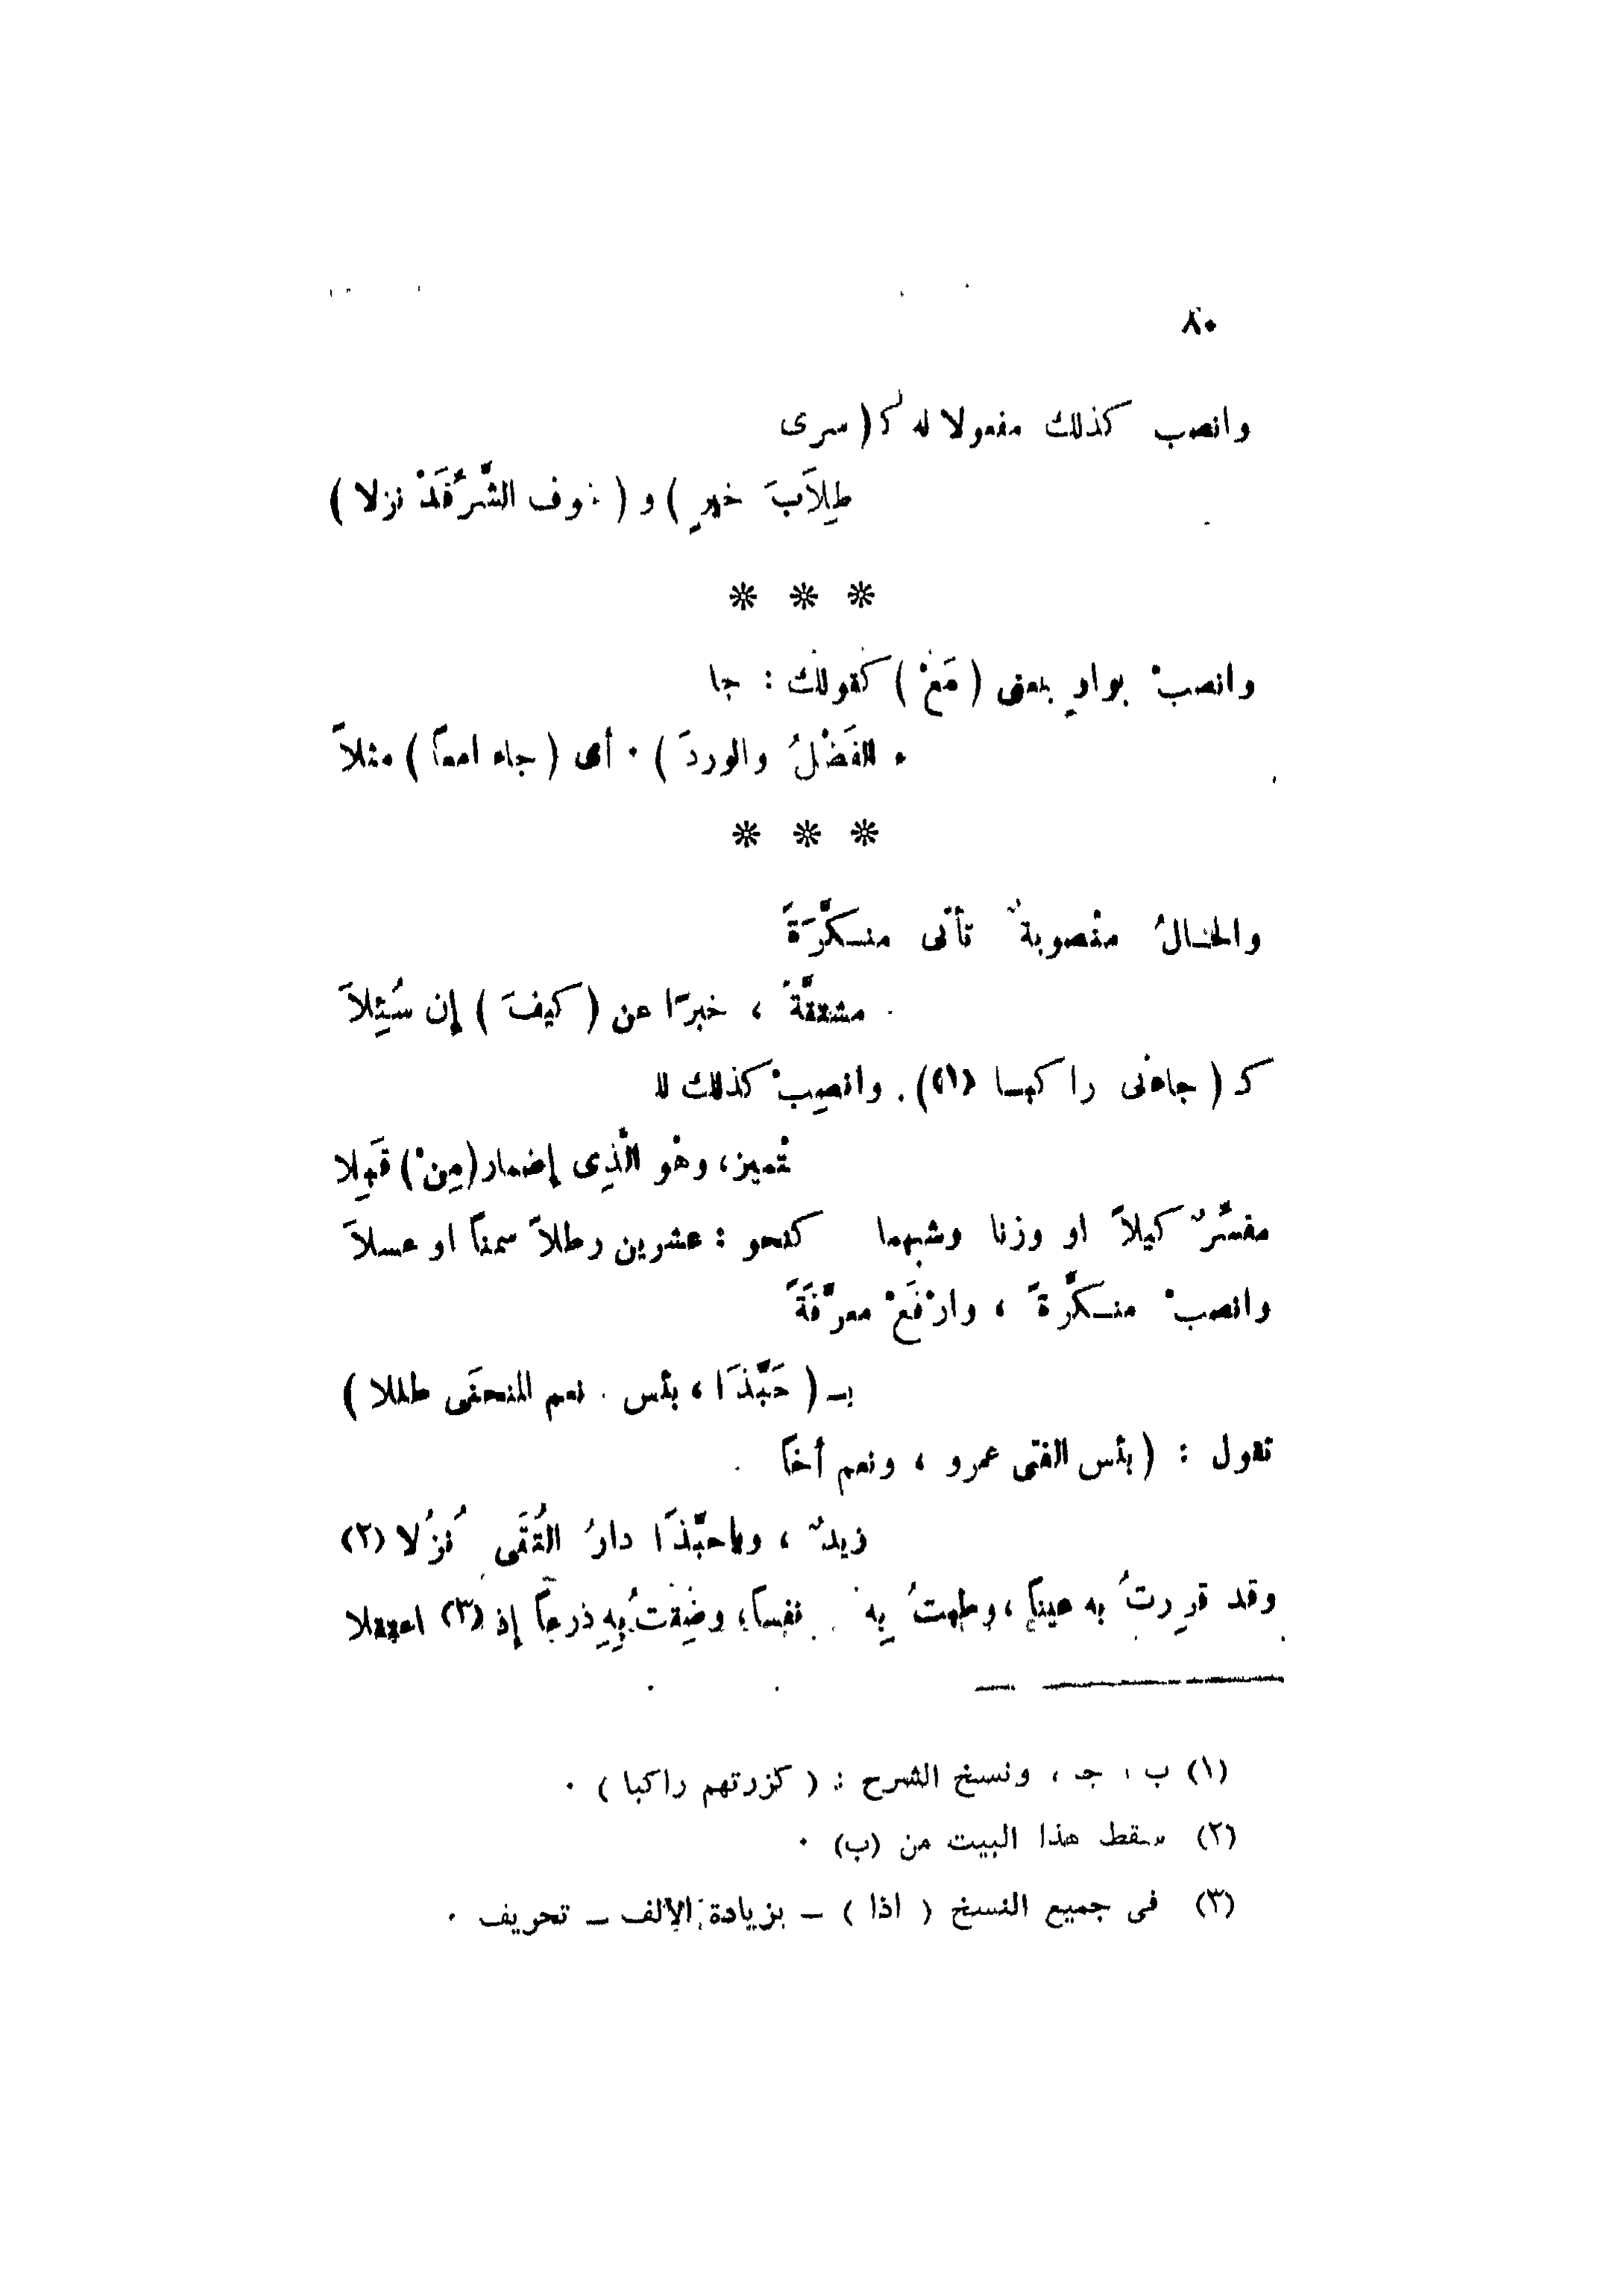 ٨٠
وانصب كذلك مفعولا له كـ ( سرى
طِلاَبَ خيرٍ ) و ( خوف الشَّرِّ قَدْ نزلا )
* * *
وانصبْ بواوٍ بمعنى ( مَعْ ) كقولك : جا
ء الفَضْلُ والوردَ ) . أى ( جاءا معاً ) مثلاَ
* * *
والحـالُ منْصوبةٌ تأتى منـكَّرَةً
مشتقَّةً ، خبرًا عن ( كيفَ ) إن سُئِلاَ
كـ ( جاءنى راكبـا (١) ) . وانصِبْ كذلك للـ
تْميز، وهْو الَّذِى إضمار ( مِنْ ) قَبِلا
مفسِّرٌ كيلاً او وزنا وشبهما كنحو : عشرين رطلاً سمناً او عسلاَ
وانصبْ منـكَّرةً ، وارْفَعْ معرَّفَةً
بـ ( حَبَّذَا ، بئس . نعم المنحنَى طللا )
تقول : ( بئس الفتى عمرو ، ونعم أخاً
زيدٌ ، وياحبَّذَا دارُ التُّقَى نُزُلا (٢)
وقد قرِرتُ به عيناً ، وطبتُ بِه نفساً، وضِقتُ بِهِ ذرعاً إذ (٣) اعتقلا
(١) ب ، جـ ، ونسخ الشرح : ( كزرتهم راكبا ) .
(٢) سقط هذا البيت من (ب) .
(٣) فى جميع النسخ ( اذا ) – بزيادة الألف – تحريف .